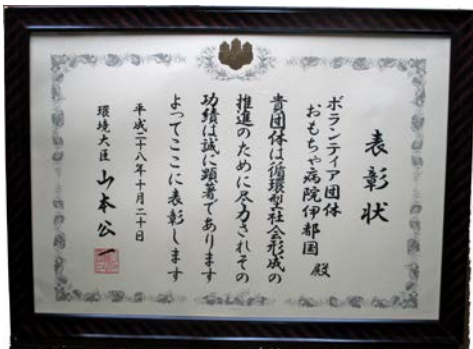 表彰状
ボランティア団体
おもちゃ病院伊都国 殿
貴団体は循環型社会形成の
推進のために尽力されその
功績は誠に顕著であります
よってここに表彰します
平成二十八年十月二十日
環境大臣 山本公一